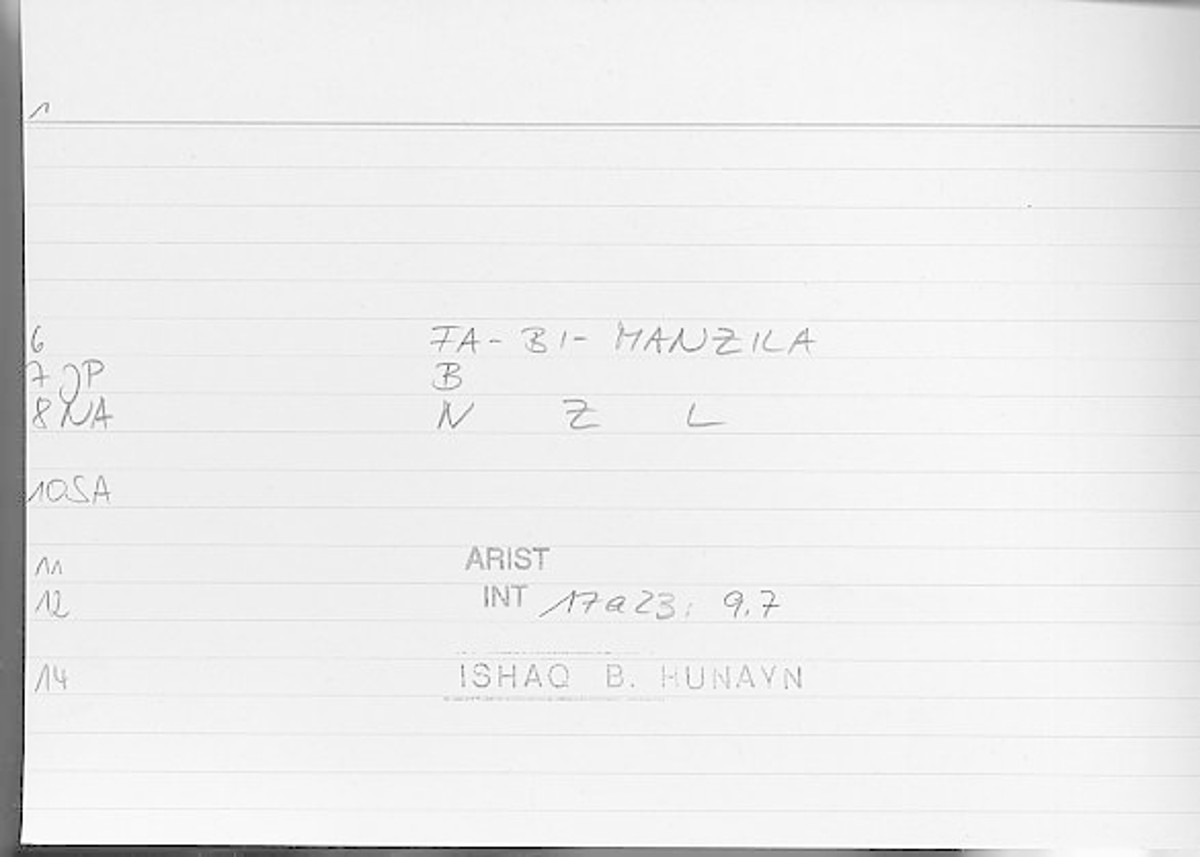 1
6 FA-BI-MANZILA
7 JP B
8 NA N Z L
10 SA
11 ARIST
12 INT 17a23; 9.7
14 ISHAQ B. HUNAYN